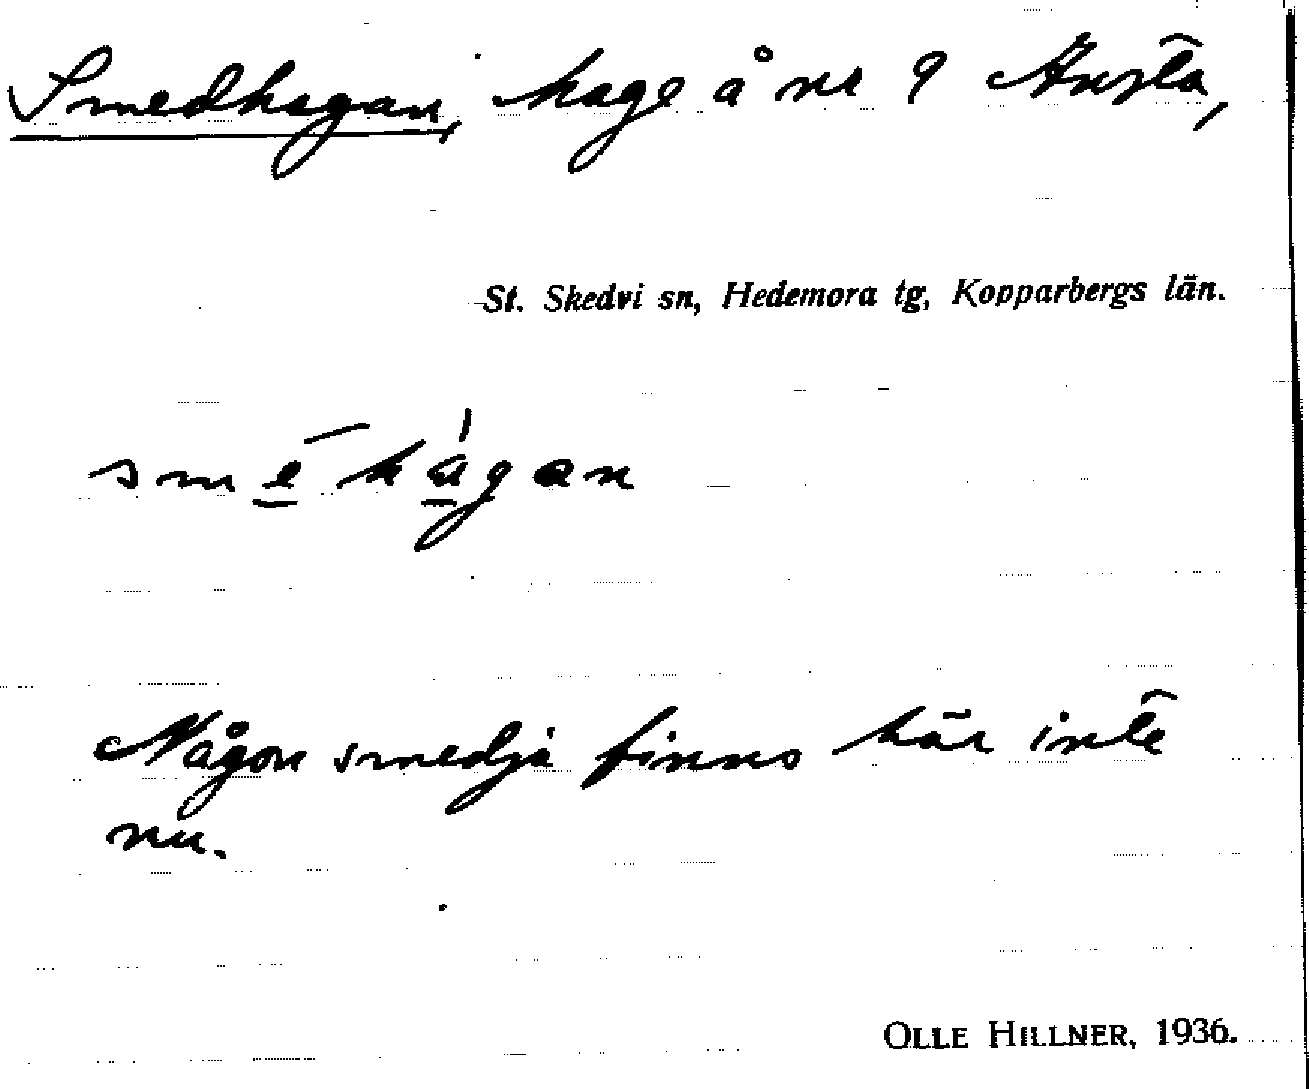 Smedhagan, hage å nr 9 Ansta,
St. Skedvi sn, Hedemora tg, Kopparbergs län.
smē hágan
Någon smedja finns här inte
nu.
OLLE HILLNER, 1936.